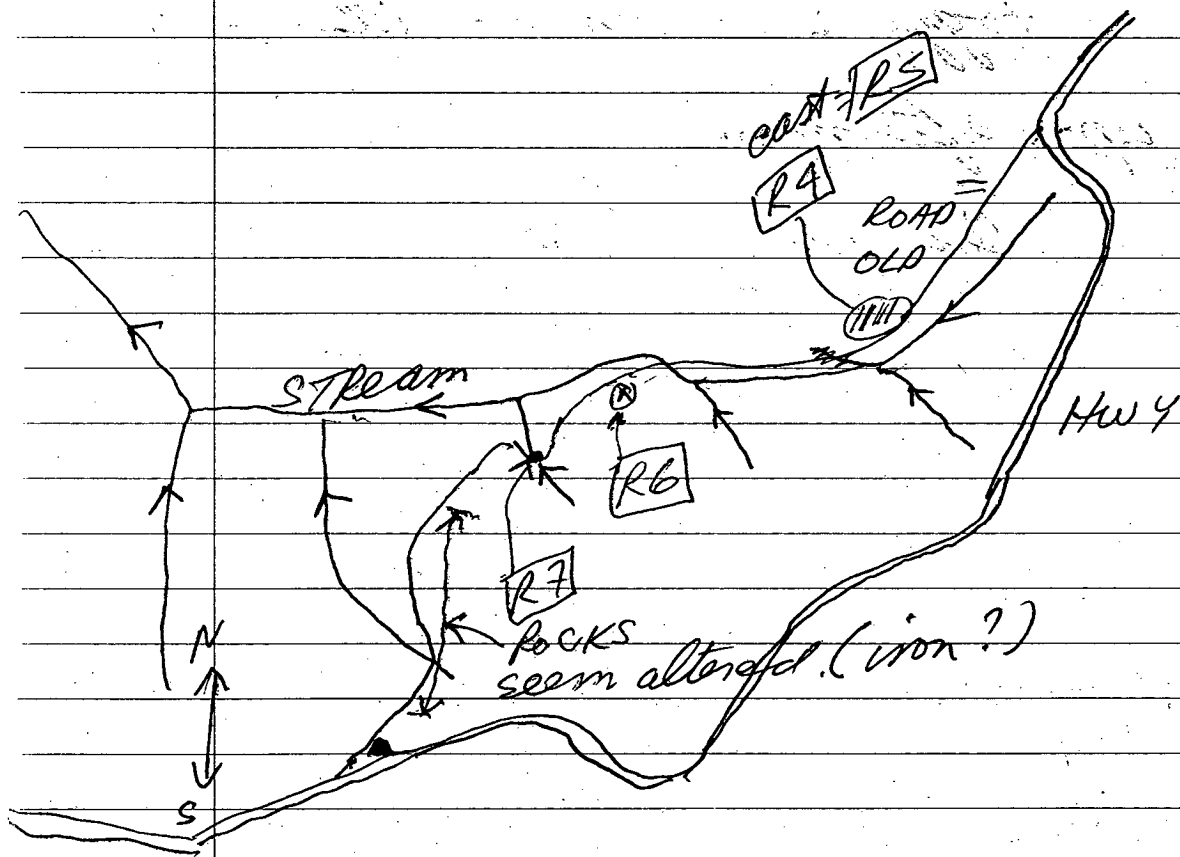 east = R5
R4
ROAD =
OLD
STREAM
HWY
R6
R7
ROCKS
seem altered. (iron?)
N
S